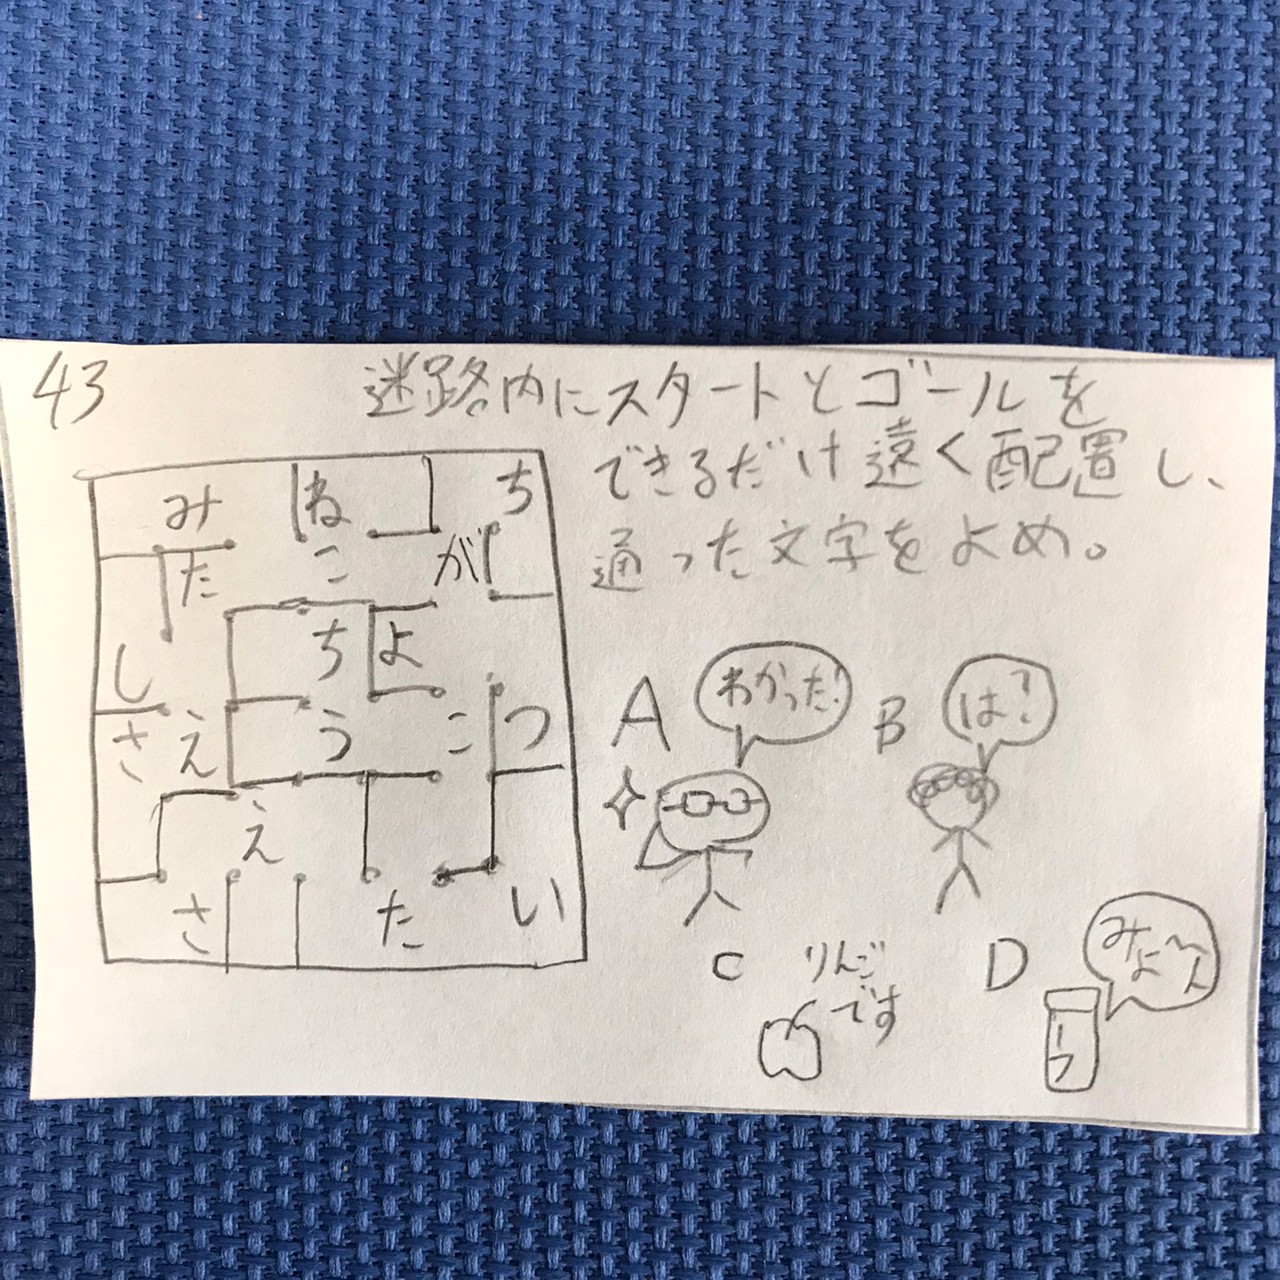 43
迷路内にスタートとゴールを
できるだけ遠く配置し、
通った文字をよめ。
み ね ち
た こ が
し ち よ
さ え う こ つ
え
さ た い
A わかった!
B は?
C りんごです
D みょ〜ん